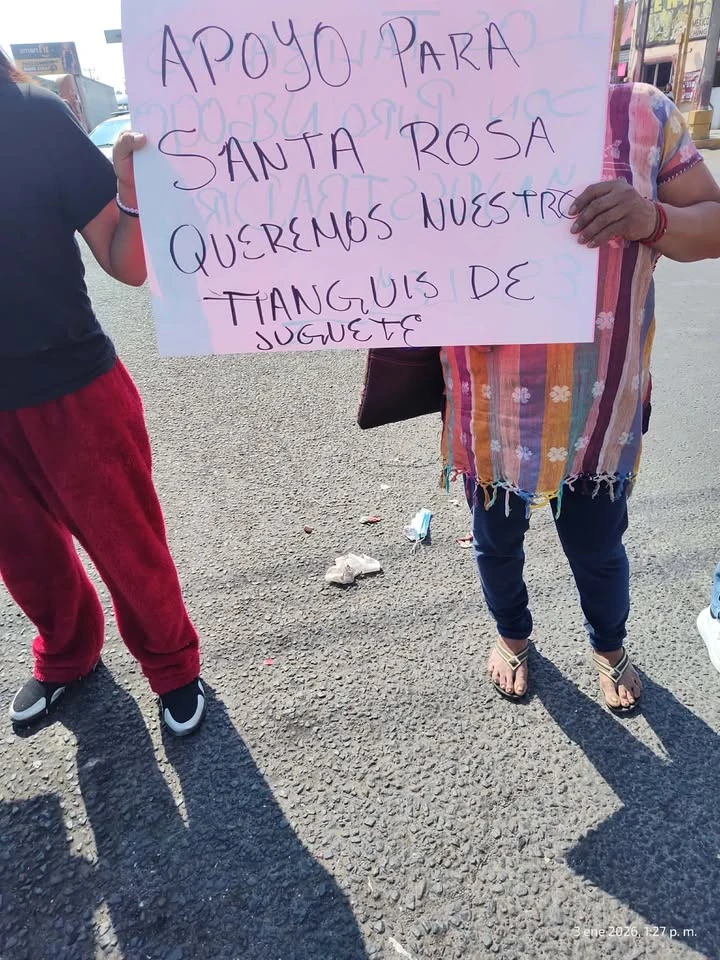 APOYO PARA
SANTA ROSA
QUEREMOS NUESTRO
TIANGUIS DE
JUGUETE
3 ene 2026, 1:27 p. m.